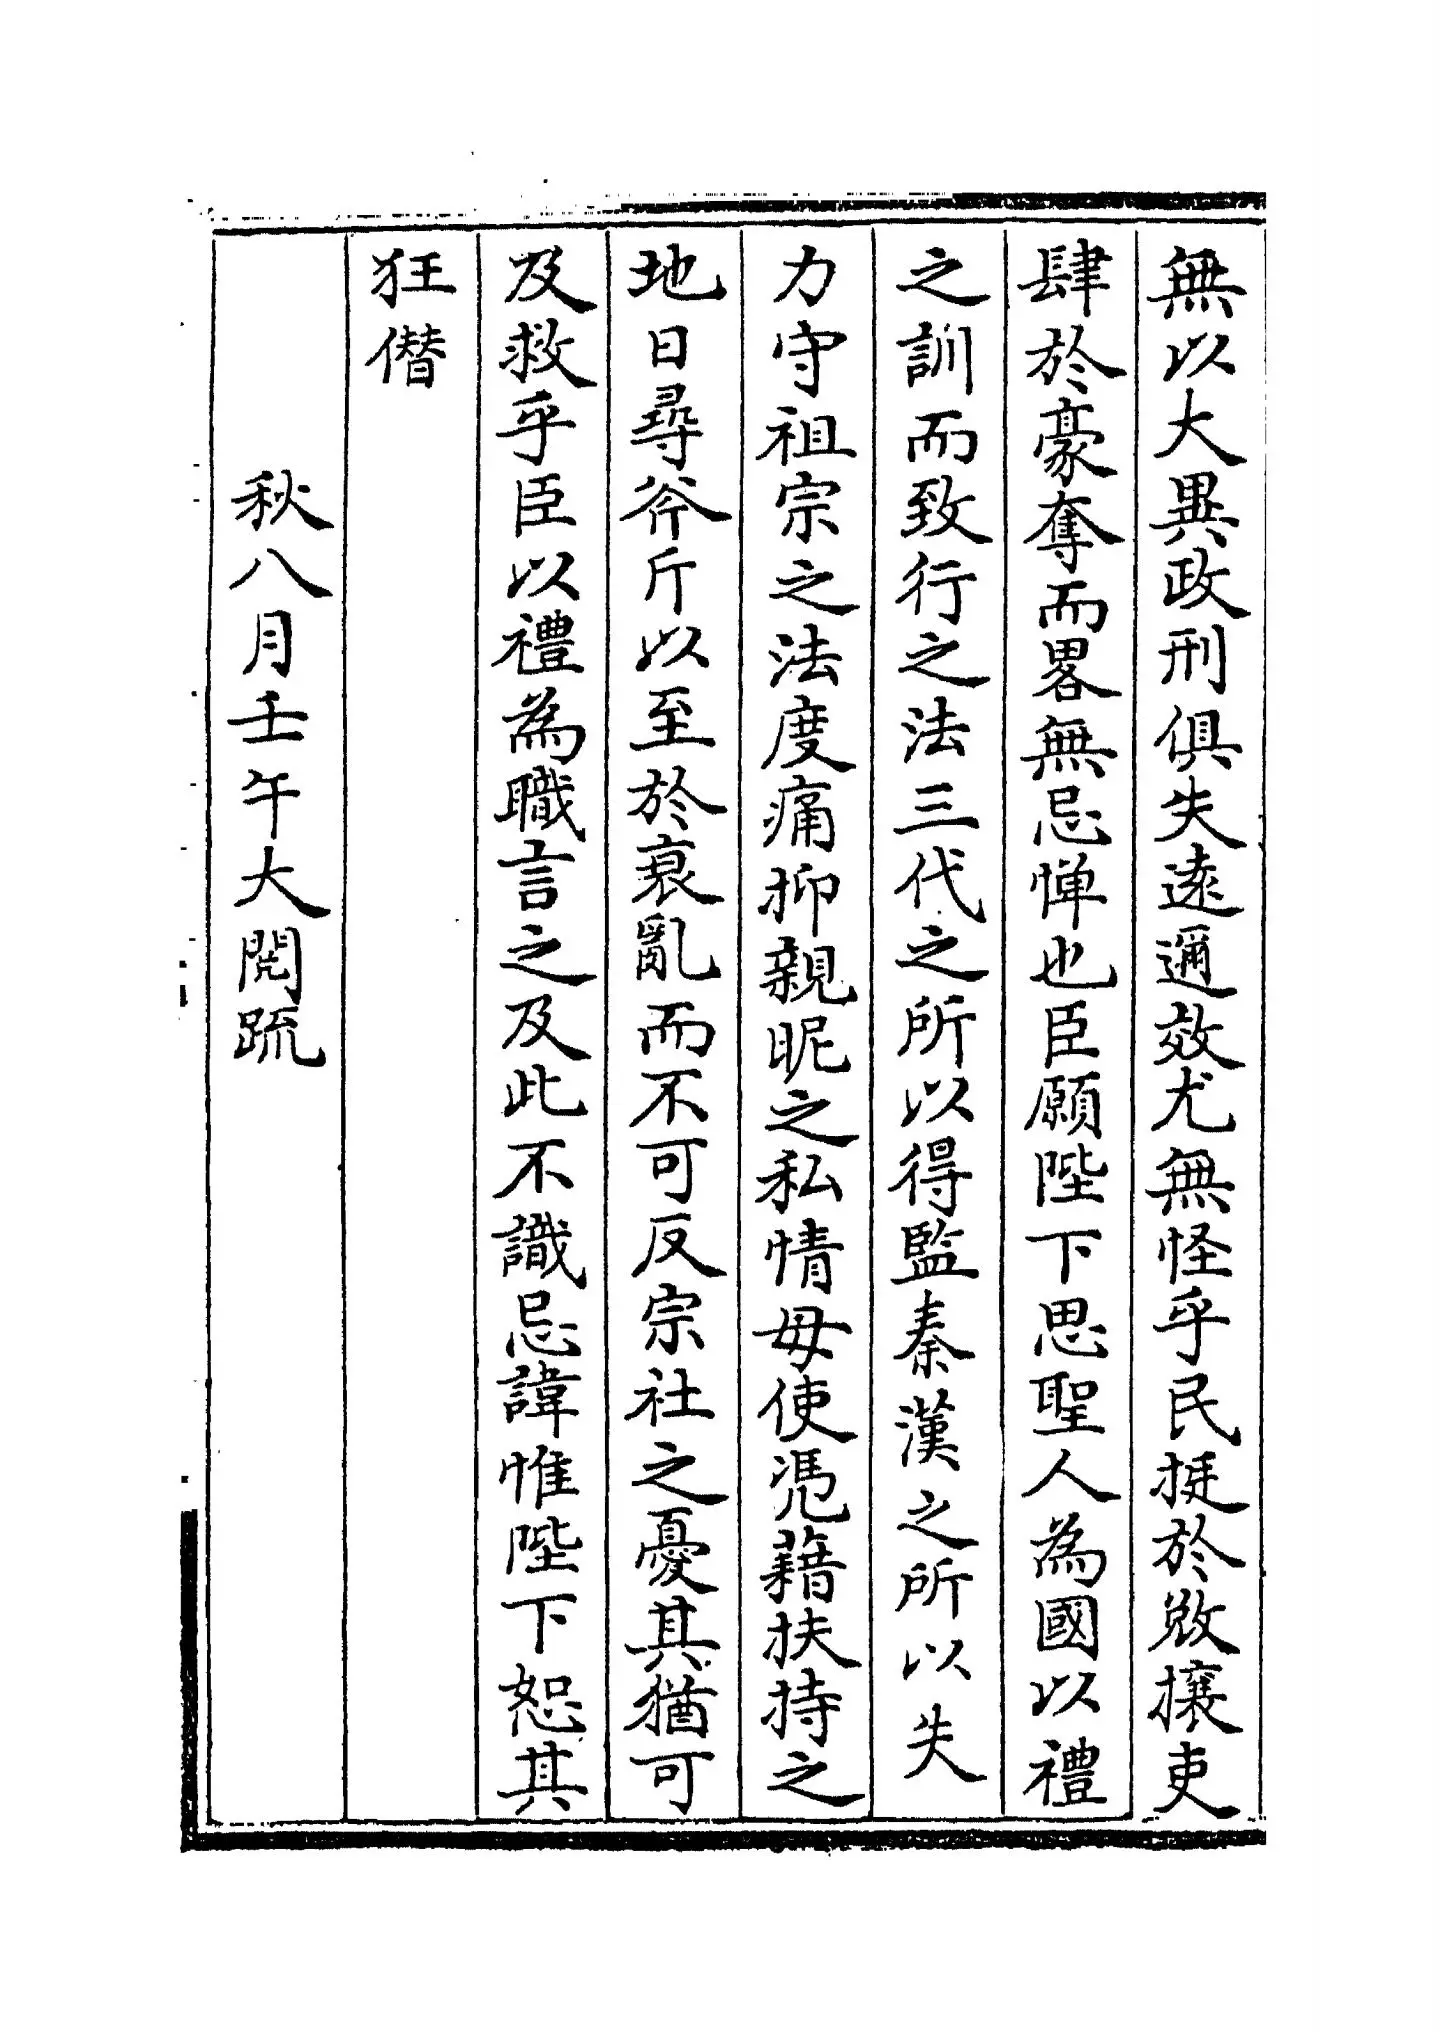 無以大異政刑俱失遠邇效尤無怪乎民挺於敚攘吏
肆於豪奪而畧無忌憚也臣願陛下思聖人為國以禮
之訓而致行之法三代之所以得監秦漢之所以失
力守祖宗之法度痛抑親昵之私情毋使憑藉扶持之
地日尋斧斤以至於衰亂而不可反宗社之憂其猶可
及救乎臣以禮為職言之及此不識忌諱惟陛下恕其
狂僭
秋八月壬午大閱疏